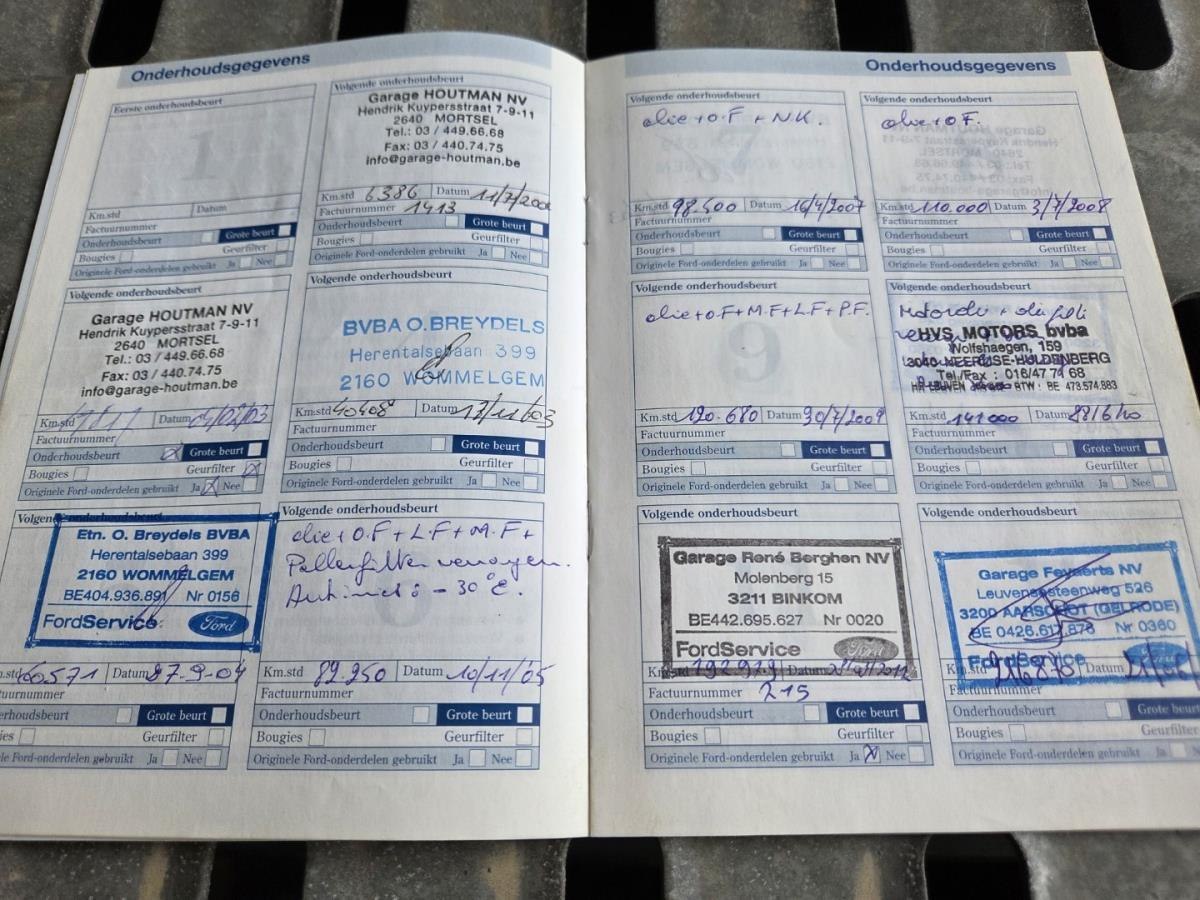 Onderhoudsgegevens
Eerste onderhoudsbeurt
1
Km.std Datum
Factuurnummer
Onderhoudsbeurt Grote beurt
Bougies Geurfilter
Originele Ford-onderdelen gebruikt Ja Nee
Volgende onderhoudsbeurt
Garage HOUTMAN NV
Hendrik Kuypersstraat 7-9-11
2640 MORTSEL
Tel.: 03 / 449.66.68
Fax: 03 / 440.74.75
info@garage-houtman.be
Km.std 6386 Datum
Factuurnummer 1413
Onderhoudsbeurt Grote beurt
Bougies Geurfilter
Originele Ford-onderdelen gebruikt Ja Nee
Volgende onderhoudsbeurt
Garage HOUTMAN NV
Hendrik Kuypersstraat 7-9-11
2640 MORTSEL
Tel.: 03 / 449.66.68
Fax: 03 / 440.74.75
info@garage-houtman.be
Km.std Datum 04/02/03
Factuurnummer
Onderhoudsbeurt Grote beurt
Bougies Geurfilter
Originele Ford-onderdelen gebruikt Ja Nee
Volgende onderhoudsbeurt
BVBA O. BREYDELS
Herentalsebaan 399
2160 WOMMELGEM
Km.std 40408 Datum
Factuurnummer
Onderhoudsbeurt Grote beurt
Bougies Geurfilter
Originele Ford-onderdelen gebruikt Ja Nee
Volgende onderhoudsbeurt
Etn. O. Breydels BVBA
Herentalsebaan 399
2160 WOMMELGEM
BE404.936.891 Nr 0156
FordService Ford
60571 Datum 27-9-04
Factuurnummer
Onderhoudsbeurt Grote beurt
Geurfilter
Originele Ford-onderdelen gebruikt Ja Nee
Volgende onderhoudsbeurt
olie + O.F + L.F + M.F +
Pollenfilter
- 30°C.
Km.std 82.250 Datum 10/11/05
Factuurnummer
Onderhoudsbeurt Grote beurt
Bougies Geurfilter
Originele Ford-onderdelen gebruikt Ja Nee
Onderhoudsgegevens
Volgende onderhoudsbeurt
olie + O.F + N.K.
Km.std 98.400 Datum 16/4/2007
Factuurnummer
Onderhoudsbeurt Grote beurt
Bougies Geurfilter
Originele Ford-onderdelen gebruikt Ja Nee
Volgende onderhoudsbeurt
olie + O.F.
Km.std 110.000 Datum 3/7/2008
Factuurnummer
Onderhoudsbeurt Grote beurt
Bougies Geurfilter
Originele Ford-onderdelen gebruikt Ja Nee
Volgende onderhoudsbeurt
olie + O.F + M.F + L.F + P.F.
Km.std 120.680 Datum 30/7/2009
Factuurnummer
Onderhoudsbeurt Grote beurt
Bougies Geurfilter
Originele Ford-onderdelen gebruikt Ja Nee
Volgende onderhoudsbeurt
HVS MOTORS bvba
Wolfshaegen, 159
3040 NEERIJSE-HULDENBERG
Tel./Fax : 016/47 71 68
HR LEUVEN BTW : BE 473.574.883
Km.std 141000 Datum
Factuurnummer
Onderhoudsbeurt Grote beurt
Bougies Geurfilter
Originele Ford-onderdelen gebruikt Ja Nee
Volgende onderhoudsbeurt
Garage René Berghen NV
Molenberg 15
3211 BINKOM
BE442.695.627 Nr 0020
FordService Ford
Km.std 192979 Datum
Factuurnummer 215
Onderhoudsbeurt Grote beurt
Bougies Geurfilter
Originele Ford-onderdelen gebruikt Ja Nee
Volgende onderhoudsbeurt
Garage Feyaerts NV
Leuvensesteenweg 526
3200 AARSCHOT (GELRODE)
BE 0426.617.876 Nr 0360
FordService
Km.std 216870 Datum
Factuurnummer
Onderhoudsbeurt Grote beurt
Bougies Geurfilter
Originele Ford-onderdelen gebruikt Ja